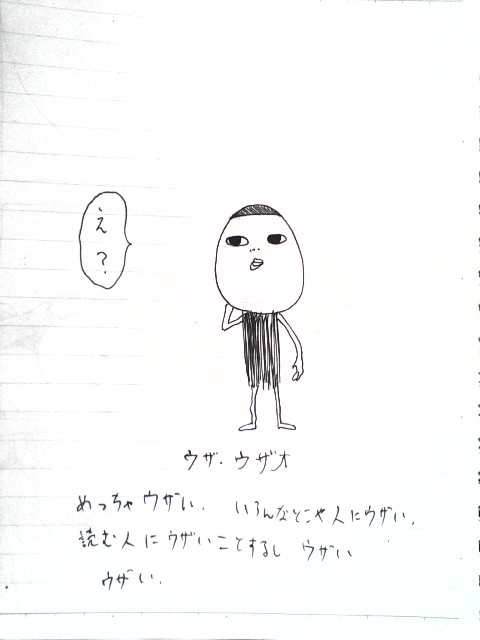 え?
ウザ・ウザオ
めっちゃウザい. いろんなとこや人にウザい.
読む人にウザいことするし ウザい
ウザい.